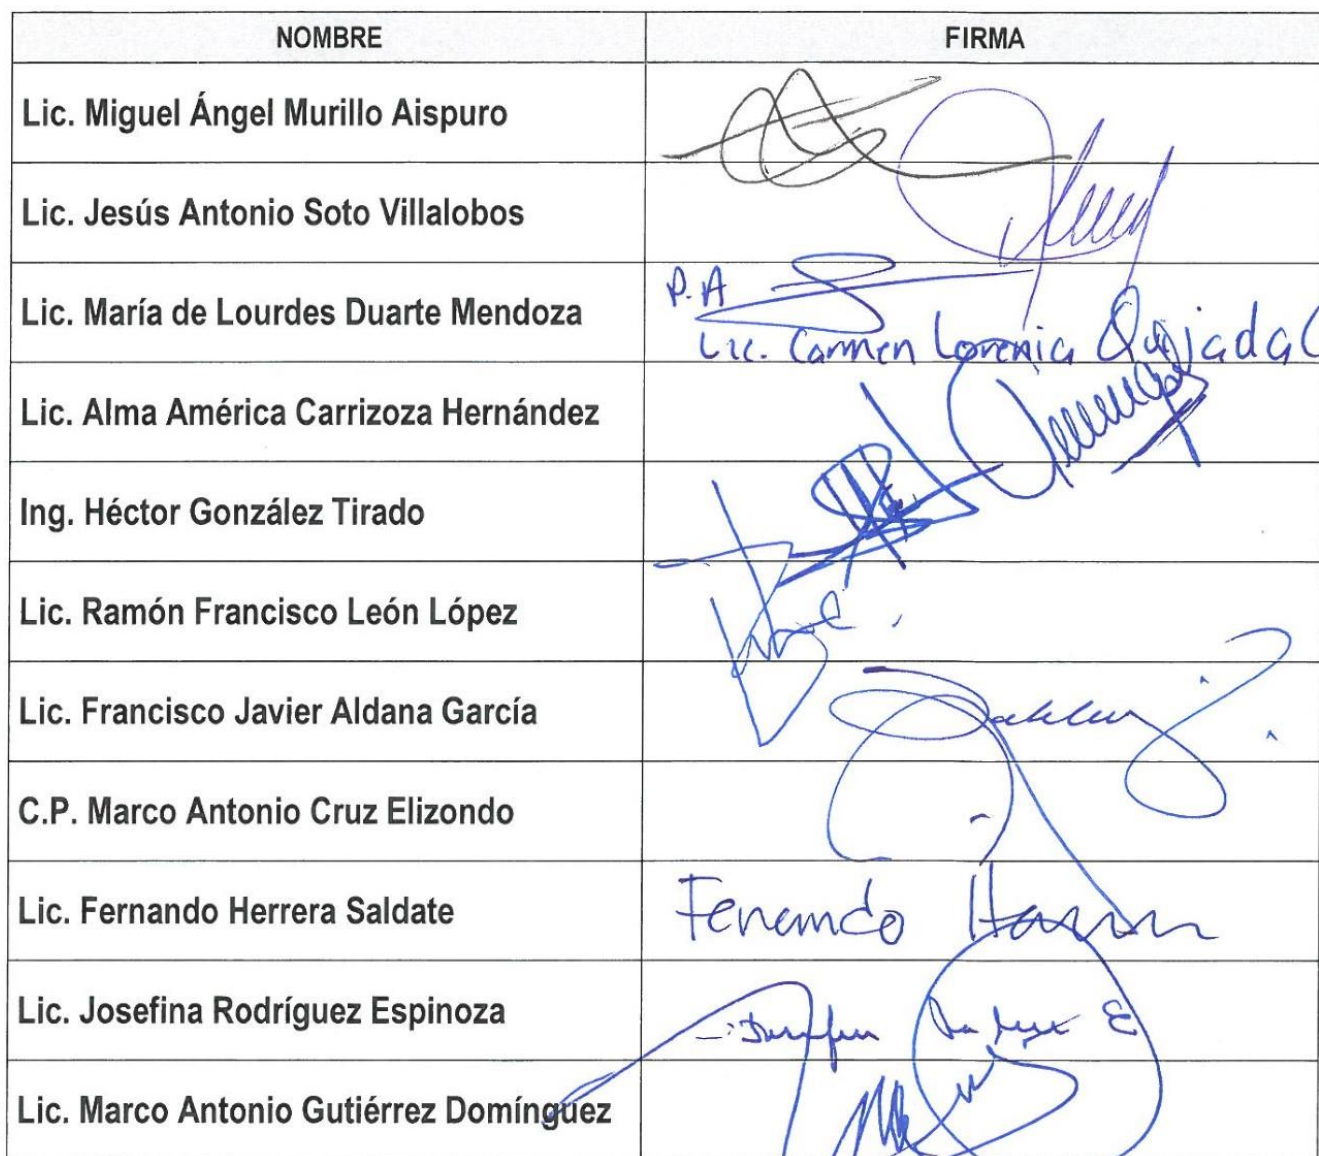 NOMBRE FIRMA
Lic. Miguel Ángel Murillo Aispuro
Lic. Jesús Antonio Soto Villalobos
Lic. María de Lourdes Duarte Mendoza P.A
Lic. Carmen Lorenia Quijada
Lic. Alma América Carrizoza Hernández
Ing. Héctor González Tirado
Lic. Ramón Francisco León López
Lic. Francisco Javier Aldana García
C.P. Marco Antonio Cruz Elizondo
Lic. Fernando Herrera Saldate
Lic. Josefina Rodríguez Espinoza
Lic. Marco Antonio Gutiérrez Domínguez